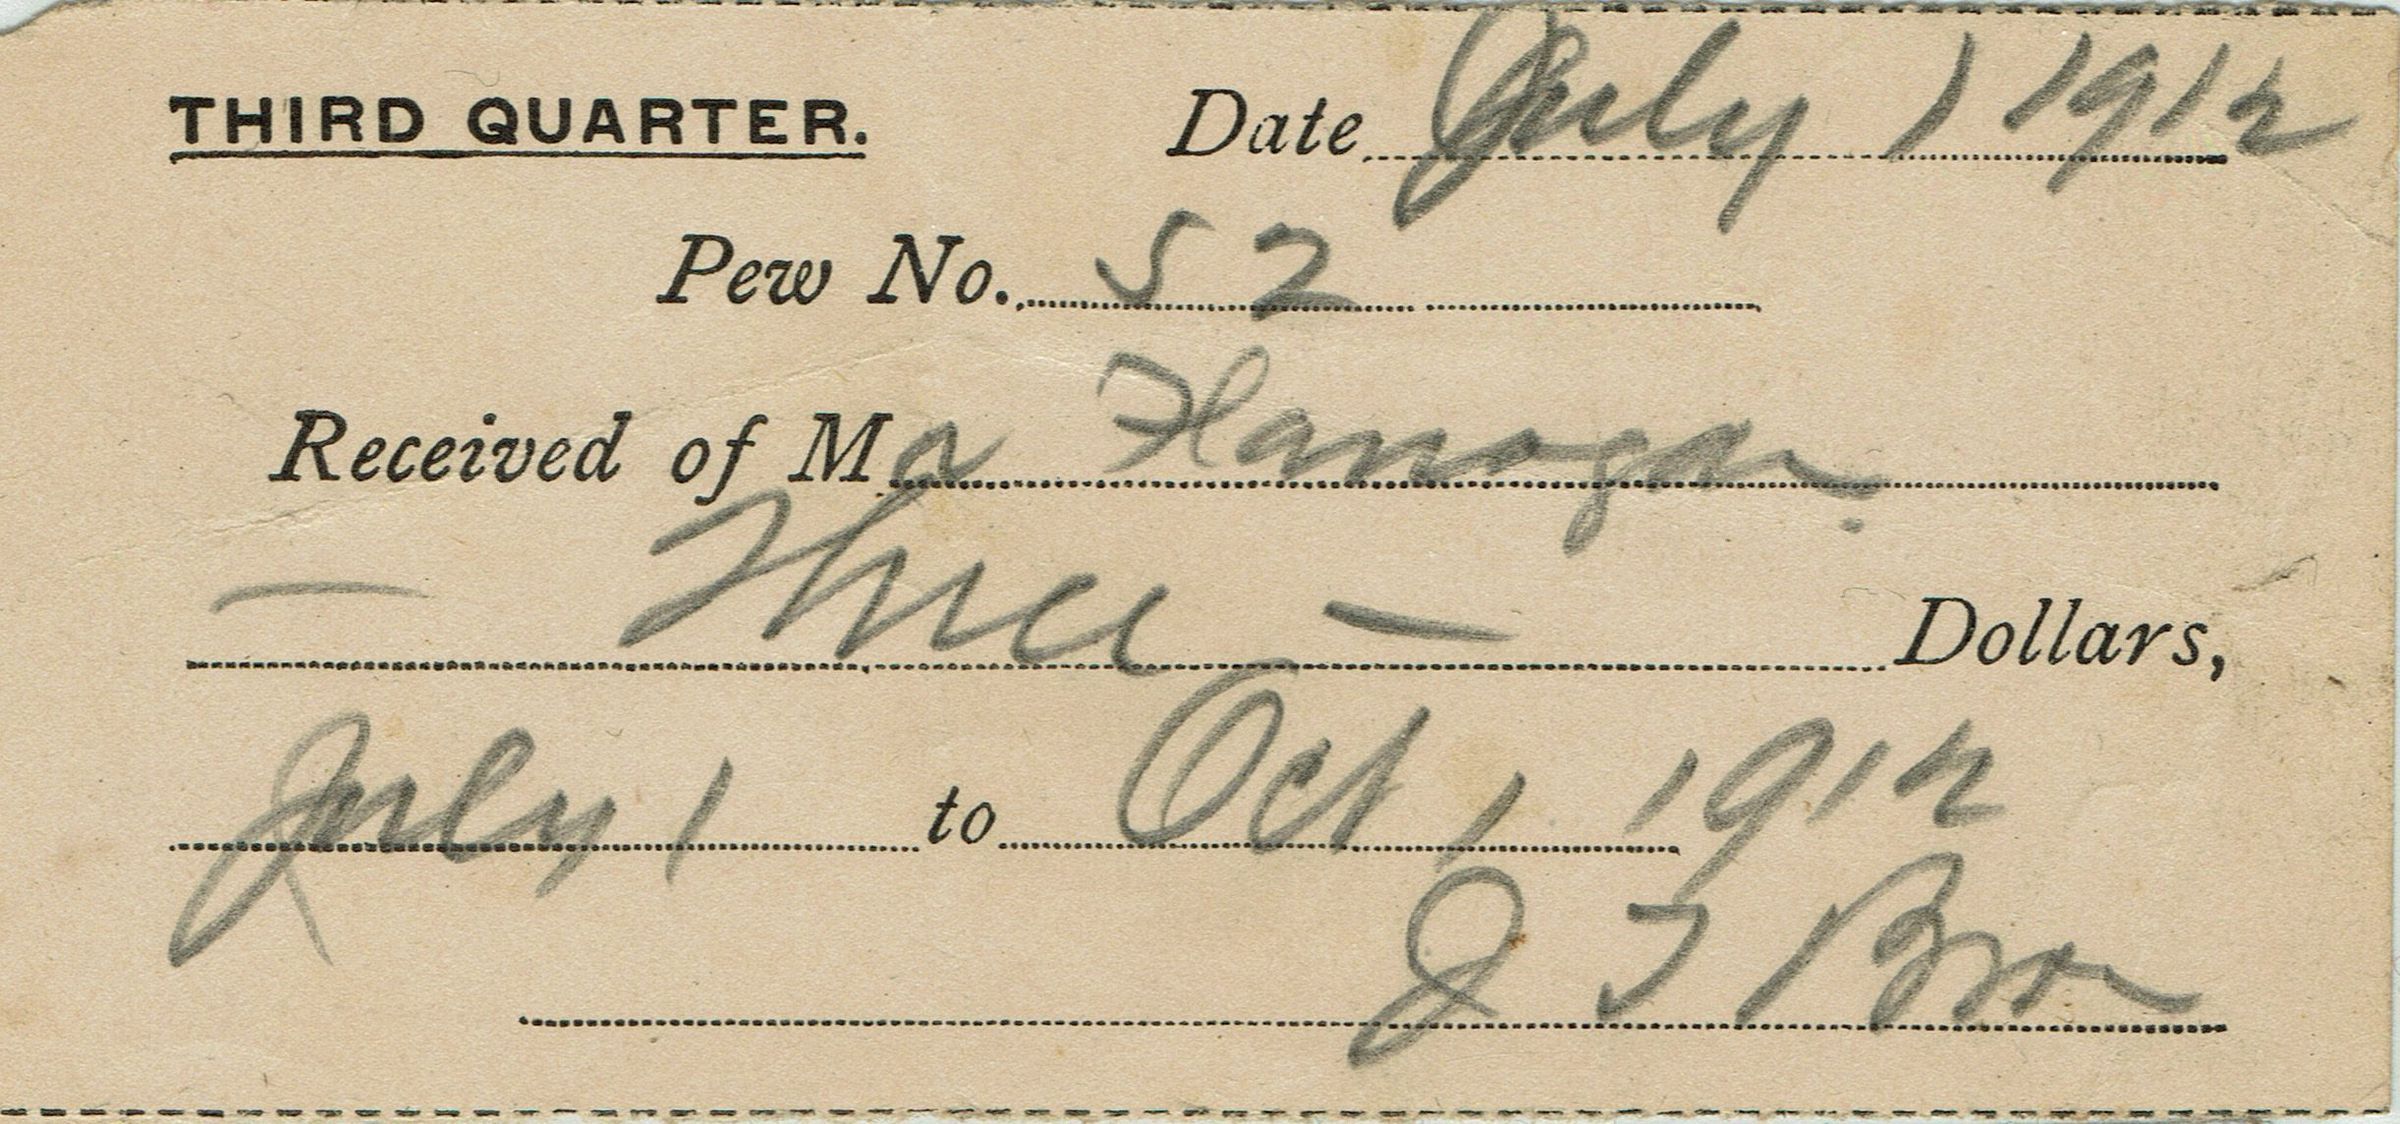 THIRD QUARTER. Date July 1 1912
Pew No. 52
Received of Mr Flanagan.
— Three — Dollars,
July 1 to Oct 1 1912
J T